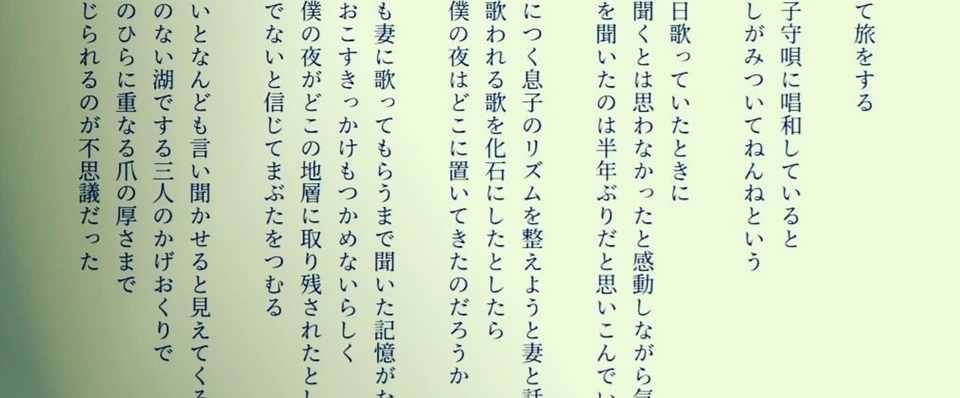 て旅をする
子守唄に唱和していると
しがみついてねんねという
日歌っていたときに
聞くとは思わなかったと感動しながら気
を聞いたのは半年ぶりだと思いこんでい
につく息子のリズムを整えようと妻と話
歌われる歌を化石にしたとしたら
僕の夜はどこに置いてきたのだろうか
も妻に歌ってもらうまで聞いた記憶がな
おこすきっかけもつかめないらしく
僕の夜がどこの地層に取り残されたとし
でないと信じてまぶたをつむる
いとなんども言い聞かせると見えてくる
のない湖でする三人のかげおくりで
のひらに重なる爪の厚さまで
じられるのが不思議だった